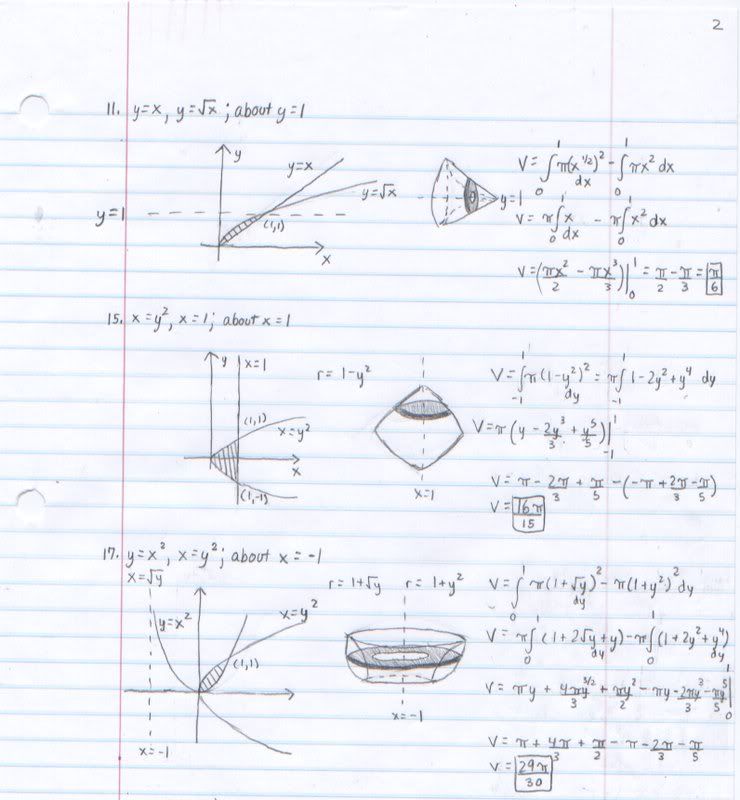 2
11. y=x, y=√x ; about y=1
y
y=x
y=√x
y=1
(1,1)
x
y=1
V= ∫₀¹ π(x^1/2)² dx - ∫₀¹ πx² dx
V= π∫₀¹ x dx - π∫₀¹ x² dx
V=(πx²/2 - πx³/3)|₀¹ = π/2 - π/3 = π/6
15. x=y², x=1; about x=1
y
x=1
(1,1)
x=y²
x
(1,-1)
r= 1-y²
x=1
V= ∫₋₁¹ π(1-y²)² dy = π∫₋₁¹ 1-2y²+y⁴ dy
V= π(y - 2y³/3 + y⁵/5)|₋₁¹
V= π - 2π/3 + π/5 - (-π + 2π/3 - π/5)
V= 16π/15
17. y=x², x=y²; about x=-1
x=√y
y=x²
x=y²
(1,1)
x=-1
r= 1+√y
r= 1+y²
x=-1
V= ∫₀¹ π(1+√y)² dy - π(1+y²)² dy
V= π∫₀¹ (1+2√y+y) dy - π∫₀¹ (1+2y²+y⁴) dy
V= πy + 4πy^3/2/3 + πy²/2 - πy - 2πy³/3 - πy⁵/5 |₀¹
V= π + 4π/3 + π/2 - π - 2π/3 - π/5
V= 29π/30